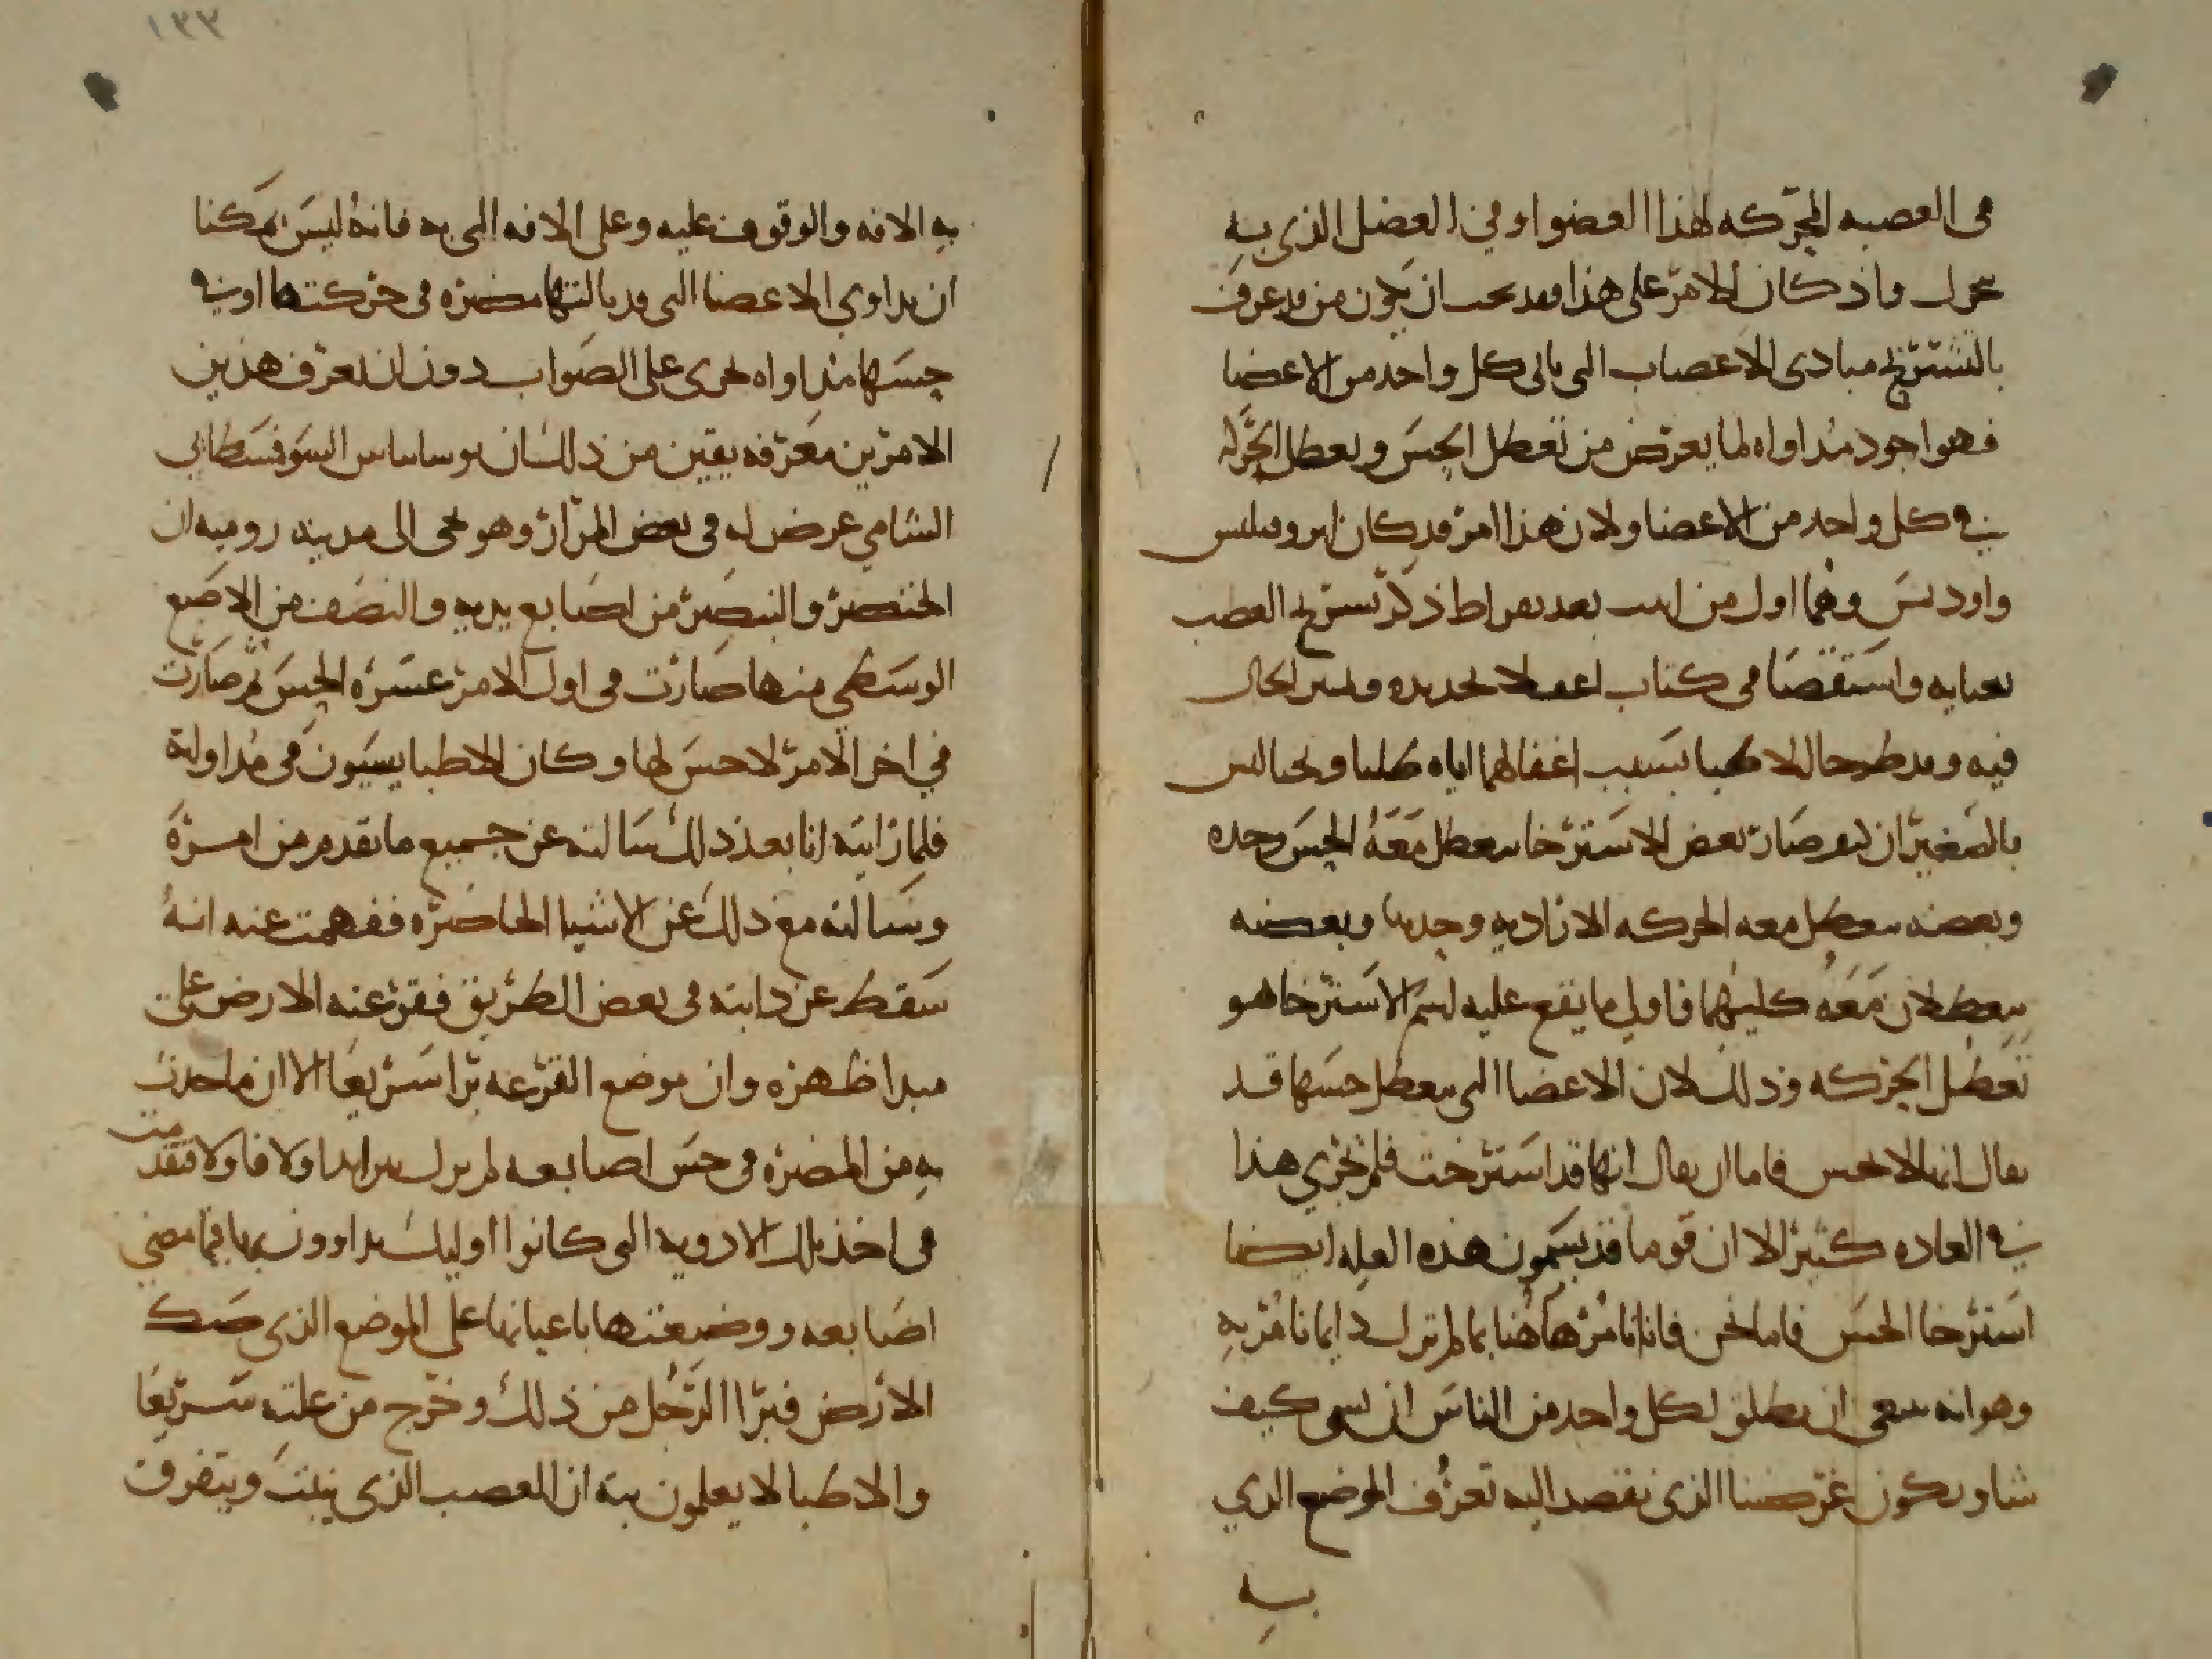 في العصبه المحركه لهذا العضو او في العضل الذي به
يتحرك واذ كان الامر على هذا فقد يجب ان يكون من قد عرف
بالتشريح مبادى الاعصاب التي تاتي كل واحد من الاعضا
فهو اجود مداواه لما يعرض من تعطل الحس وتعطل الحركه
في كل واحد من الاعضا ولان هذا امر قد كان ايروفيلس
واوديمس وهما اول من بعد بقراط ذكر تشريح العصب
بعنايه واستقصا في كتاب اغفلا تحديده وتبيين الحال
فيه وقد طرحا الاطبا بسبب اغفالهما اياه طلبا وبحثا ليس
بالصغير ان كيف صار بعض الاسترخا يتعطل معه الحس وحده
وبعضه يتعطل معه الحركه الاراديه وحدها وبعضه
يتعطلان معه كليهما فاولى ما يقع عليه اسم الاسترخا هو
تعطل الحركه وذلك لان الاعضا التي يتعطل حسها قد
يقال انها لا تحس فاما ان يقال انها قد استرخت فلم تجري هذا
في العاده كثير الا ان قوما قد يسمون هذه العله ايضا
استرخا الحس فاما نحن فانا نامر هاهنا بما لم نزل دايما نامر به
وهو انه ينبغي ان يطلق لكل واحد من الناس ان يسمى كيف
شا ويكون غرضنا الذى نقصد اليه تعرف الموضع الذي
به
١٣٣
به الافه والوقوف عليه وعلى الافه التي به فانه ليس يمكنا
ان يداوي الاعضا التي قد نالتها مضره في حركتها او في
حسها مداواه تجرى على الصواب دون ان تعرف هذين
الامرين معرفه يقين من ذلك ان بوساساس السوفسطاني
الشامي عرض له في بعض المرار وهو يجى الى مدينه روميه ان
الخنصر والبنصر من اصابع يديه والنصف من الاصبع
الوسطى منها صارت في اول الامر عسره الحس ثم صارت
في اخر الامر لا حس لها وكان الاطبا يسيون في مداولة
فلما رايته انا بعد ذلك سالته عن جميع ما تقدم من امره
وسالته مع ذلك عن الاشيا الحاضره ففهمت عنه انه
سقط عن دابته في بعض الطريق فقرعته الارض على
مبدا ظهره وان موضع القرعه برا سريعا الا ان ما حدث
به من المضره في حس اصابعه لم يزل يتزايد اولا فاولا فتقدمت
في اخذ تلك الادويه التي كانوا اوليك يداوون بها فيما مضي
اصابعه ووضعتها باعيانها على الموضع الذى صك
الارض فبرا الرجل من ذلك وخرج من علته سريعا
والاطبا لا يعلمون بته ان العصب الذى ينبت ويتفرق